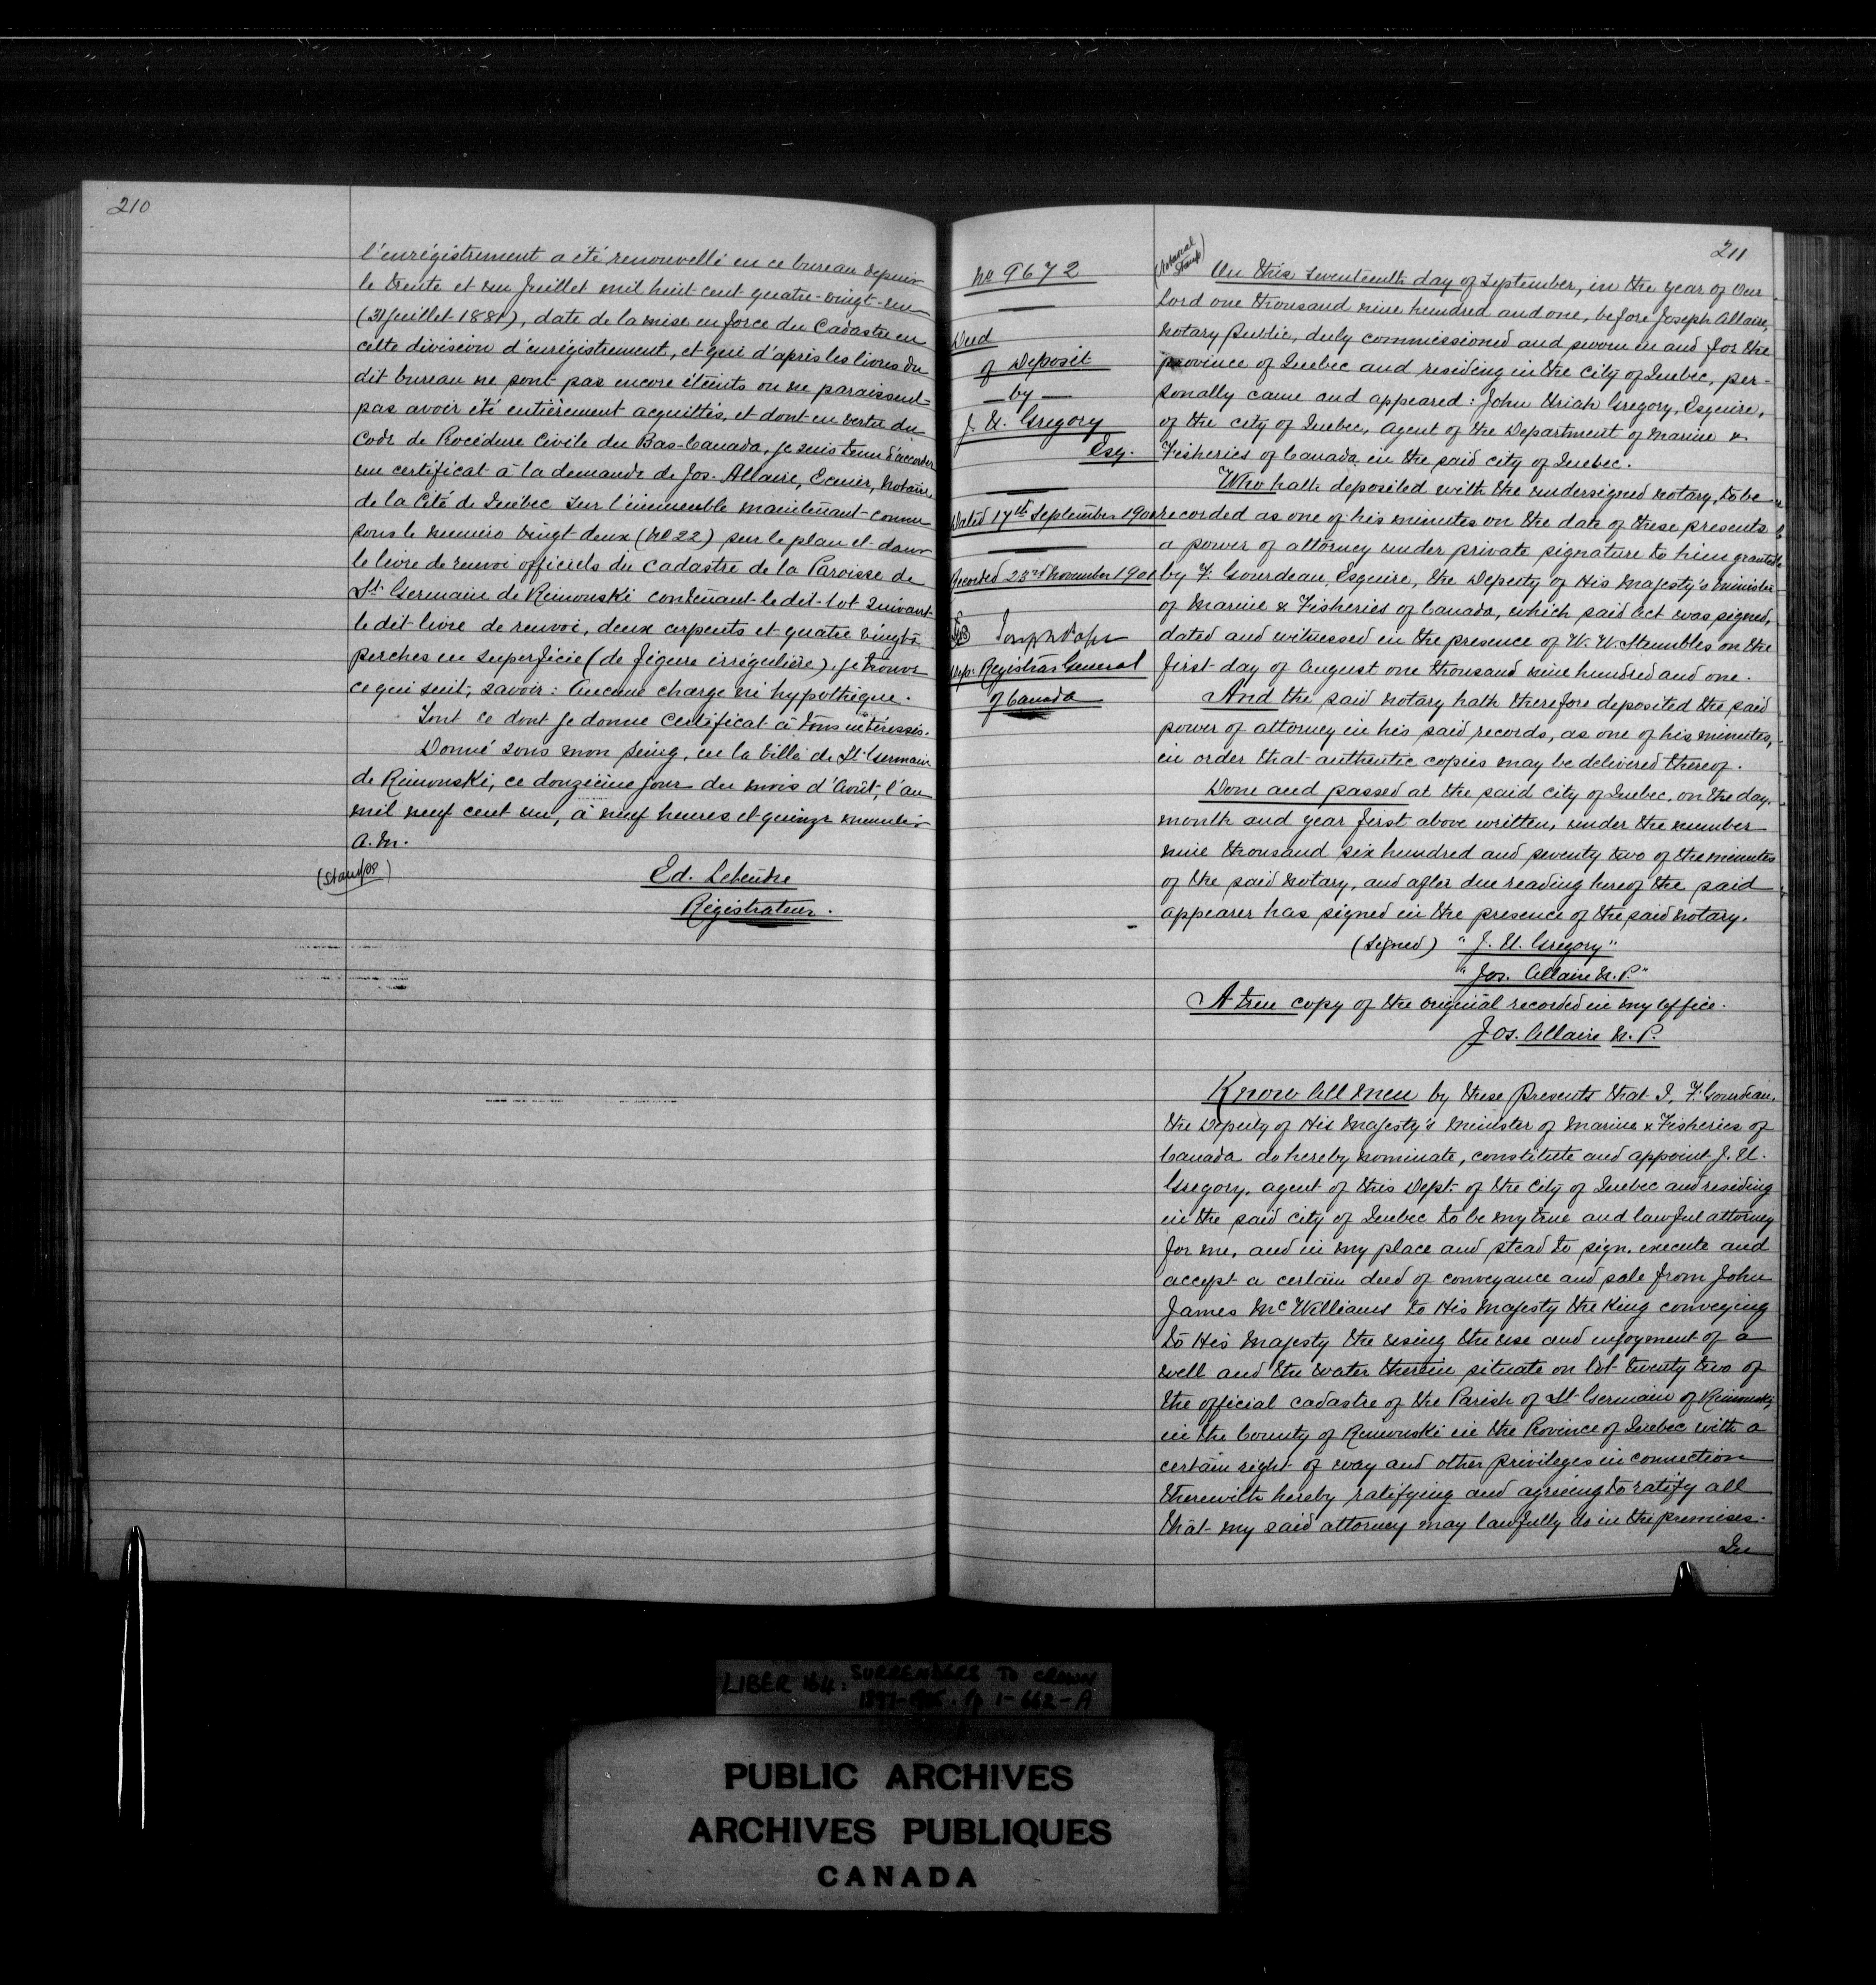 210
l'enrégistrement a été renouvellé en ce bureau depuis
le trente et un Juillet mil huit cent quatre-vingt-un
(31 Juillet 1881), date de la mise en force du Cadastre en
cette division d'enrégistrement, et qui d'après les livres du
dit bureau ne sont pas encore éteints ou ne paraissent
pas avoir été entièrement acquittés, et dont en vertu du
Code de Procédure Civile du Bas-Canada, je suis tenu d'accorder
un certificat à la demande de Jos. Allaire, Ecuier, Notaire,
de la Cité de Québec sur l'immeuble maintenant connu
sous le numéro vingt deux (No 22) sur le plan et dans
le livre de renvoi officiels du Cadastre de la Paroisse de
St. Germain de Rimouski contenant le dit lot suivant
le dit livre de renvoi, deux arpents et quatre vingts
perches en superficie (de figure irrégulière). je trouve
ce qui suit, savoir: Aucune charge ni hypothèque.
Tout ce dont je donne Certificat à tous intéressés.
Donné sous mon seing, en la Ville de St. Germain
de Rimouski, ce douzième jour du mois d'Août, l'an
mil neuf cent un, à neuf heures et quinze minutes
a.m.
(Stamps)
Ed.
Régistrateur.
211
No 9672
Deed
of Deposit
— by —
J. U. Gregory
Esq.
Dated 17th September 1901
Recorded 23rd November 1901
Joseph Pope
Dep. Registrar General
of Canada
(Notarial
Stamp)
On this seventeenth day of September, in the year of Our
Lord one thousand nine hundred and one, before Joseph Allaire,
Notary Public, duly commissioned and sworn in and for the
province of Quebec and residing in the City of Quebec, per-
sonally came and appeared: John Uriah Gregory, Esquire,
of the city of Quebec, Agent of the Department of Marine &
Fisheries of Canada in the said city of Quebec.
Who hath deposited with the undersigned notary, to be
recorded as one of his minutes on the date of these presents
a power of attorney under private signature to him granted
by F. Gourdeau, Esquire, the Deputy of His Majesty's Minister
of Marine & Fisheries of Canada, which said Act was signed,
dated and witnessed in the presence of W. W. Stumbles on the
first day of August one thousand nine hundred and one.
And the said notary hath therefore deposited the said
power of attorney in his said records, as one of his minutes,
in order that authentic copies may be delivered thereof.
Done and passed at the said City of Quebec, on the day,
month and year first above written, under the number
nine thousand six hundred and seventy two of the minutes
of the said Notary, and after due reading hereof the said
appearer has signed in the presence of the said notary.
(Signed) "J. U. Gregory"
"Jos. Allaire N. P."
A true copy of the original recorded in my Office.
Jos. Allaire N. P.
Know All Men by these Presents that I, F. Gourdeau,
the Deputy of His Majesty's Minister of Marine & Fisheries of
Canada do hereby nominate, constitute and appoint J. U.
Gregory, agent of this Dept. of the City of Quebec and residing
in the said city of Quebec to be my true and lawful attorney
for me, and in my place and stead to sign, execute and
accept a certain deed of conveyance and sale from John
James McWilliams to His Majesty the King conveying
to His Majesty the using the use and enjoyment of a
well and the water therein situate on lot twenty two of
the official cadastre of the Parish of St. Germain of Rimouski,
in the County of Rimouski in the Province of Quebec with a
certain right of way and other privileges in connection
therewith hereby ratifying and agreeing to ratify all
that my said attorney may lawfully do in the premises.
In
LIBER 164: SURRENDERS TO CROWN
1897-1905. Pp 1-662-A
PUBLIC ARCHIVES
ARCHIVES PUBLIQUES
CANADA